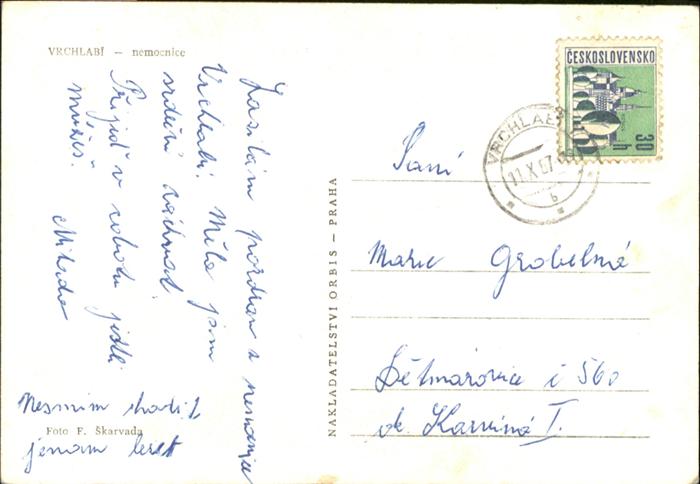 VRCHLABÍ — nemocnice
Zasílám pozdrav z nemocnice
Vrchlabí. Měla jsem
srdeční záchvat.
Přijeď v sobotu jestli
můžeš.
Milada
Nesmím chodit
jenom ležet
Foto F. Škarvada
NAKLADATELSTVÍ ORBIS — PRAHA
ČESKOSLOVENSKO
30 h
VRCHLABÍ
11.X.67
b
Paní
Marie Grobelná
Dětmarovice č 560
ok. Karviná I.